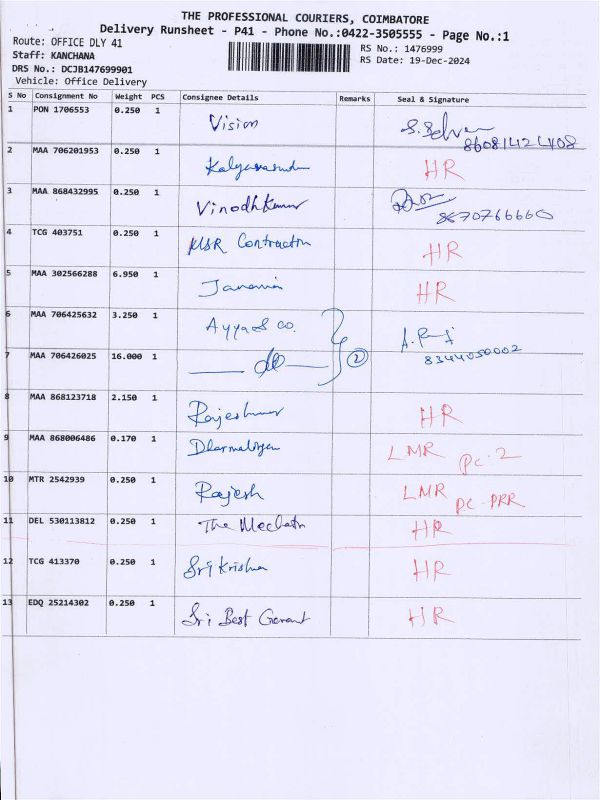 THE PROFESSIONAL COURIERS, COIMBATORE
Delivery Runsheet - P41 - Phone No.:0422-3505555 - Page No.:1
Route: OFFICE DLY 41
RS No.: 1476999
Staff: KANCHANA
RS Date: 19-Dec-2024
DRS No.: DCJB147699901
Vehicle: Office Delivery
S No Consignment No Weight PCS Consignee Details Remarks Seal & Signature
1 PON 1706553 0.250 1 Vision
2 MAA 706201953 0.250 1 HR
3 MAA 868432995 0.250 1 Vinodhkumar 8870766660
4 TCG 403751 0.250 1 HR
5 MAA 302566288 6.950 1 HR
6 MAA 706425632 3.250 1 Ayya & co.
8344050002
7 MAA 706426025 16.000 1 do 2
8 MAA 868123718 2.150 1 HR
9 MAA 868006486 0.170 1 LMR PC-2
10 MTR 2542939 0.250 1 Rajesh LMR PC-PRR
11 DEL 530113812 0.250 1 HR
12 TCG 413370 0.250 1 Sri Krishna HR
13 EDQ 25214302 0.250 1 Sri Best HR